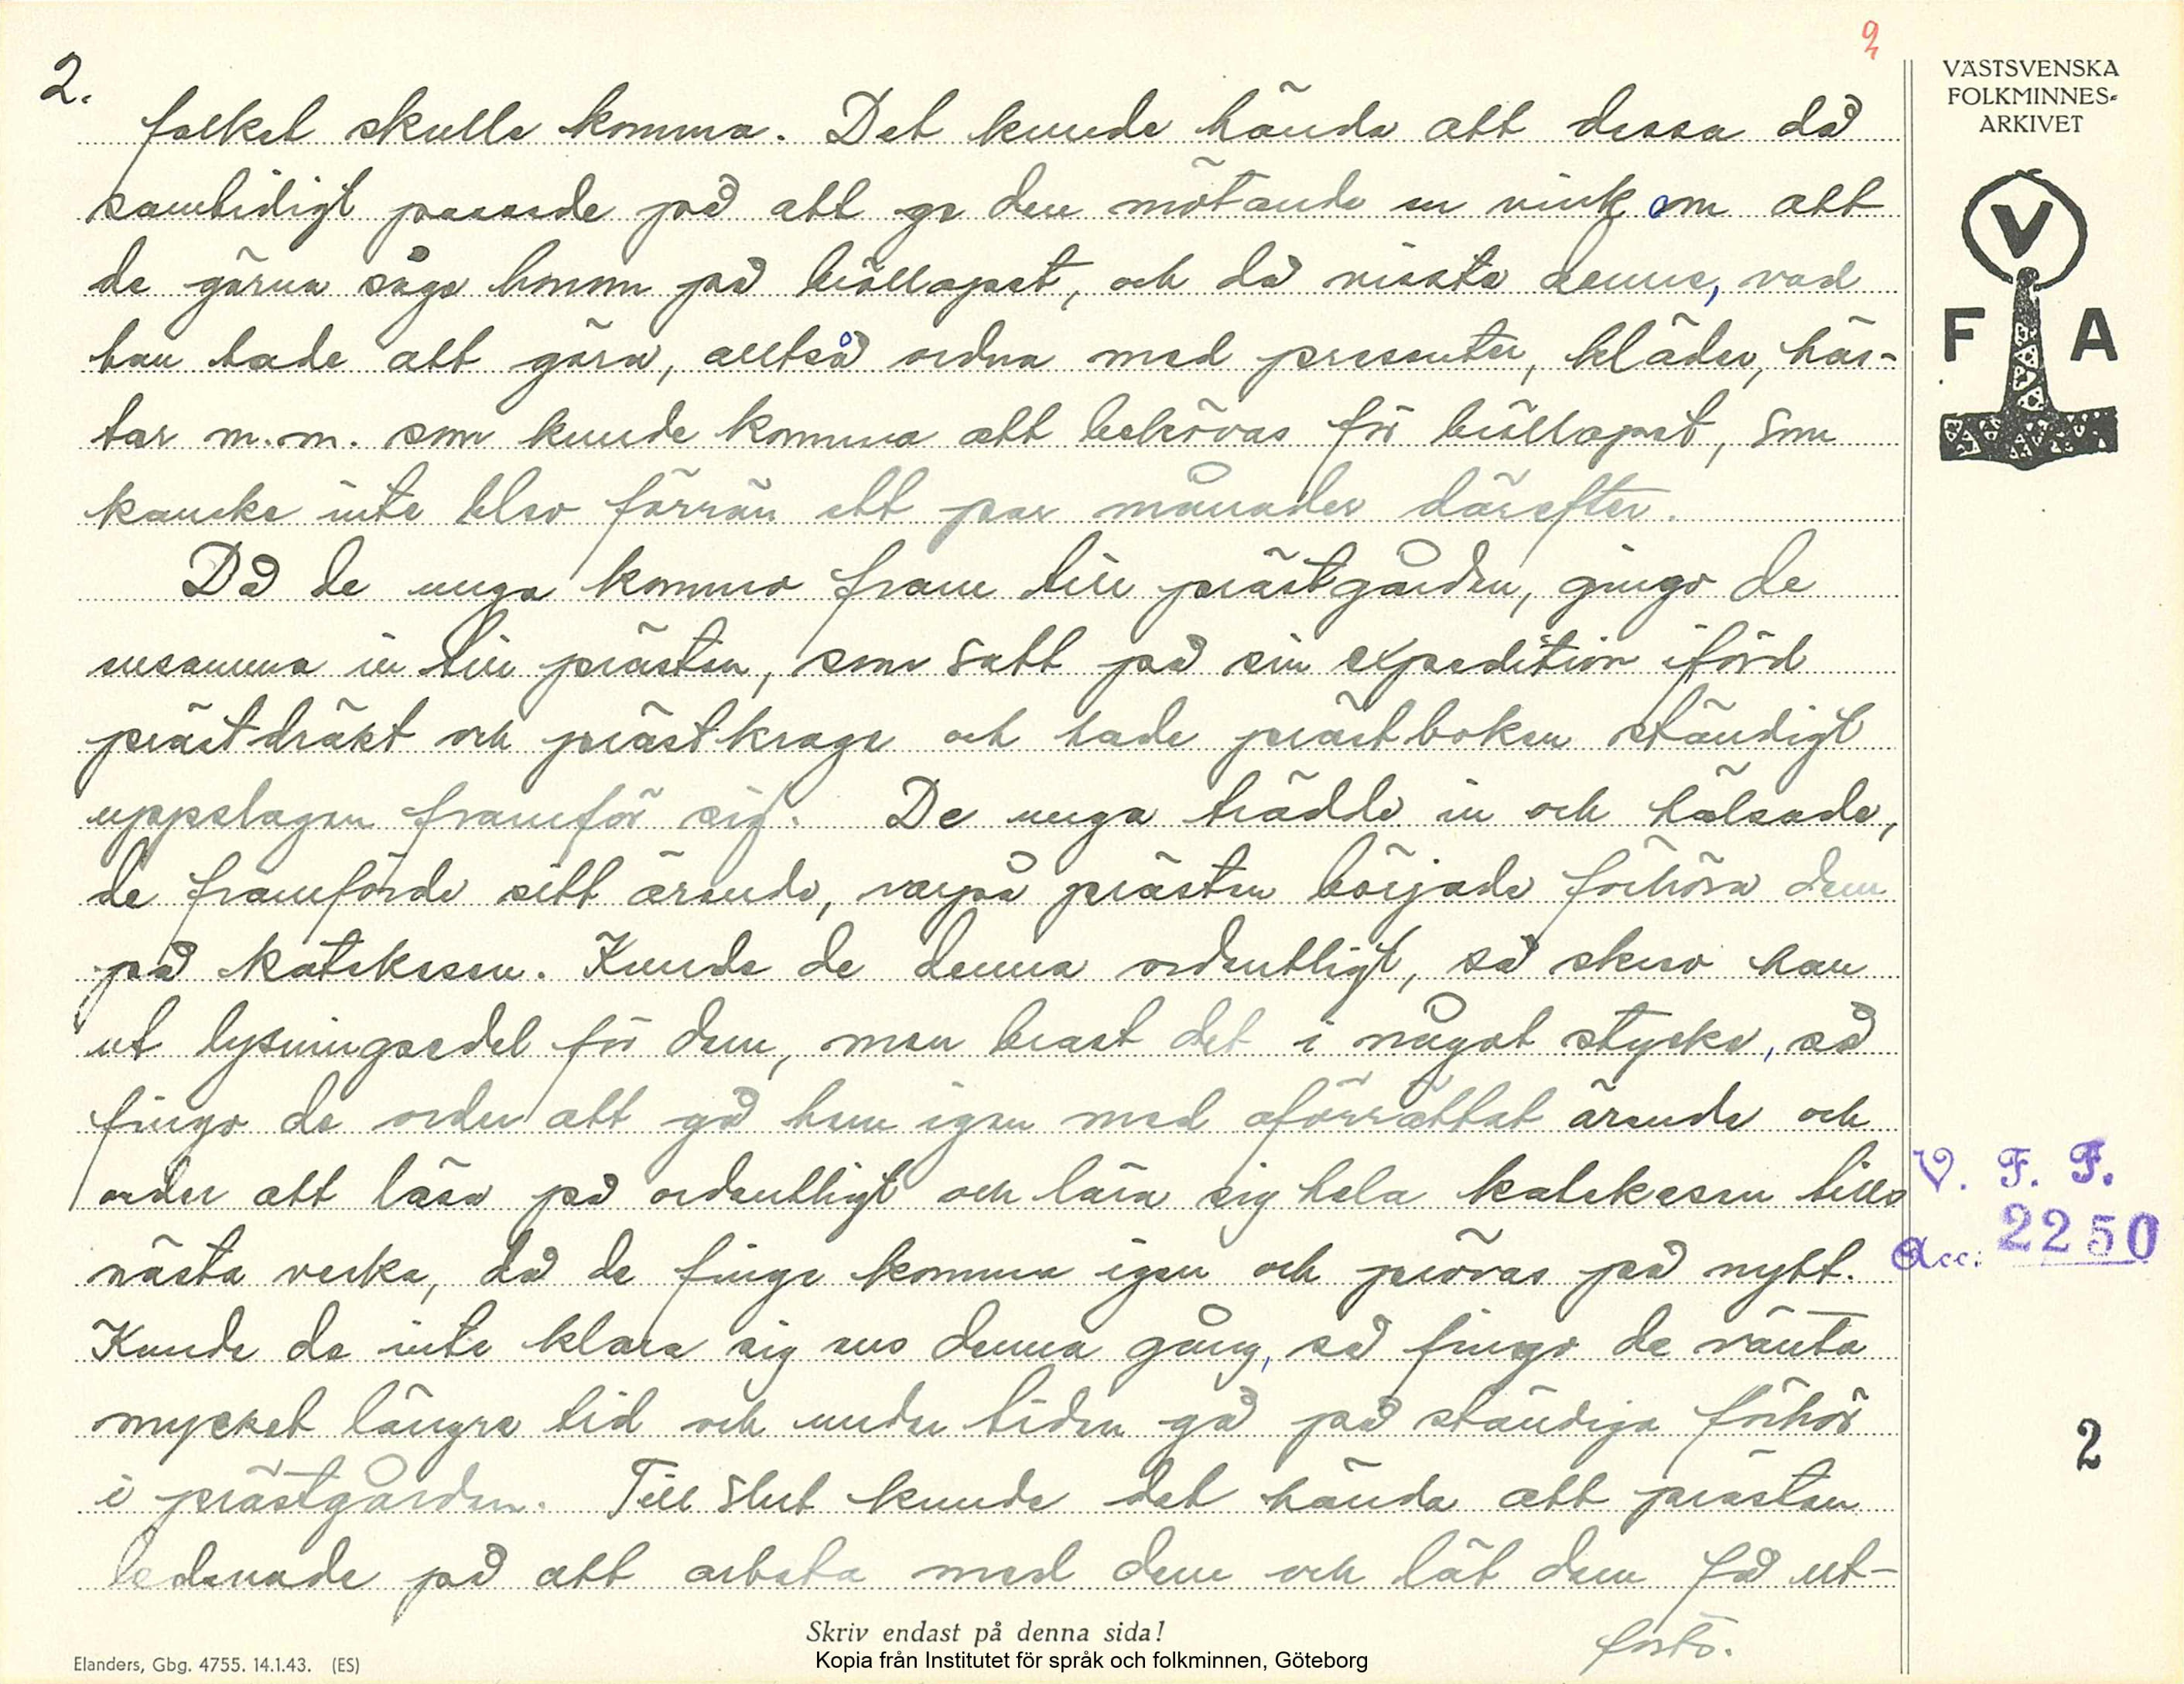 2.
2
VÄSTSVENSKA
FOLKMINNES-
ARKIVET
V
F A
folket skulle komma. Det kunde hända att dessa då
samtidigt passade på att ge den mötande en vink om att
de gärna såge honom på bröllopet, och då visste denne, vad
han hade att göra, alltså ordna med presenter, kläder, häs-
tar m.m. som kunde komma att behövas för bröllopet, som
kanske inte blev förrän ett par månader därefter.
Då de unga kommo fram till prästgården, gingo de
ensamma in till prästen, som satt på sin expedition iförd
prästdräkt och prästkrage och hade prästboken ständigt
uppslagen framför sig. De unga trädde in och hälsade,
de framförde sitt ärende, varpå prästen började förhöra dem
på katekesen. Kunde de denna ordentligt, så skrev han
ut lysningssedel för dem, men brast det i något stycke, så
fingo de order att gå hem igen med oförrättat ärende och
order att läsa på ordentligt och lära sig hela katekesen tills
nästa vecka, då de finge komma igen och prövas på nytt.
Kunde de inte klara sig ens denna gång, så fingo de vänta
mycket längre tid och under tiden gå på ständiga förhör
i prästgården. Till slut kunde det hända att prästen
ledsnade på att arbeta med dem och lät dem få ut-
forts.
V. F. F.
Acc: 2250
2
Skriv endast på denna sida!
Elanders, Gbg. 4755. 14.1.43. (ES)
Kopia från Institutet för språk och folkminnen, Göteborg